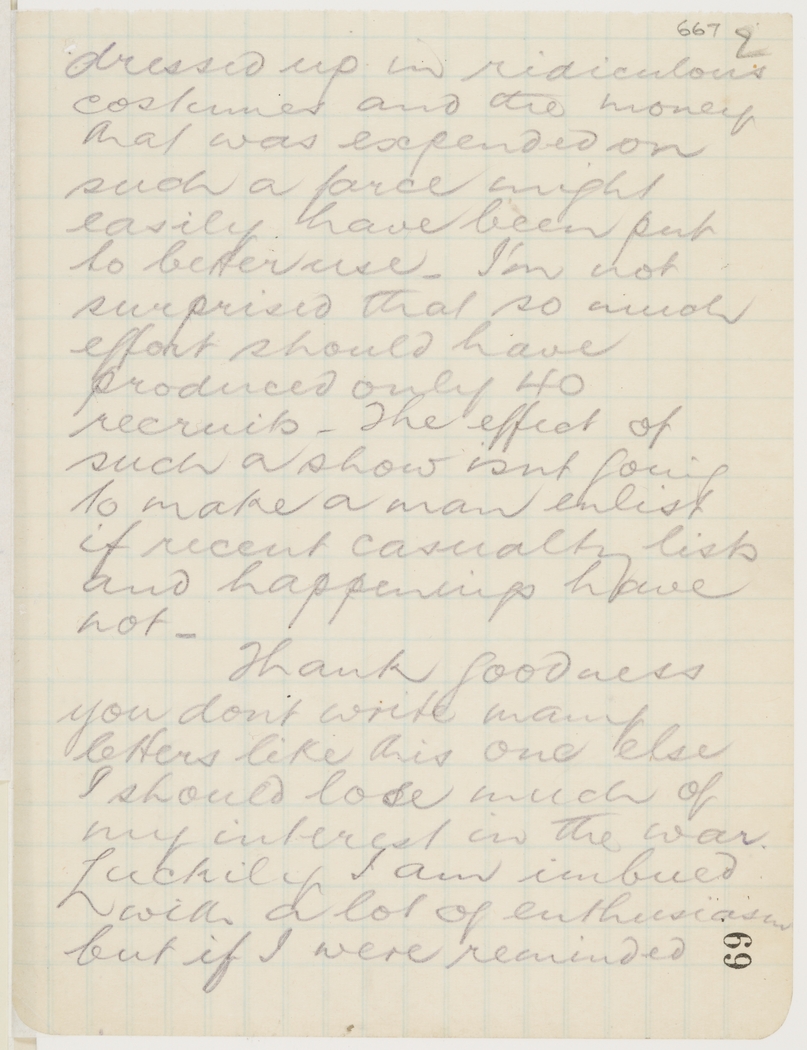 667 2
dressed up in ridiculous
costumes and the money
that was expended on
such a farce might
easily have been put
to better use - I'm not
surprised that so much
effort should have
produced only 40
recruits - The effect of
such a show isnt going
to make a man enlist
if recent casualty lists
and happenings have
not -
Thank goodness
you dont write many
letters like this one else
I should lose much of
my interest in the war.
Luckily I am imbued
with a lot of enthusiasm
but if I were reminded
69